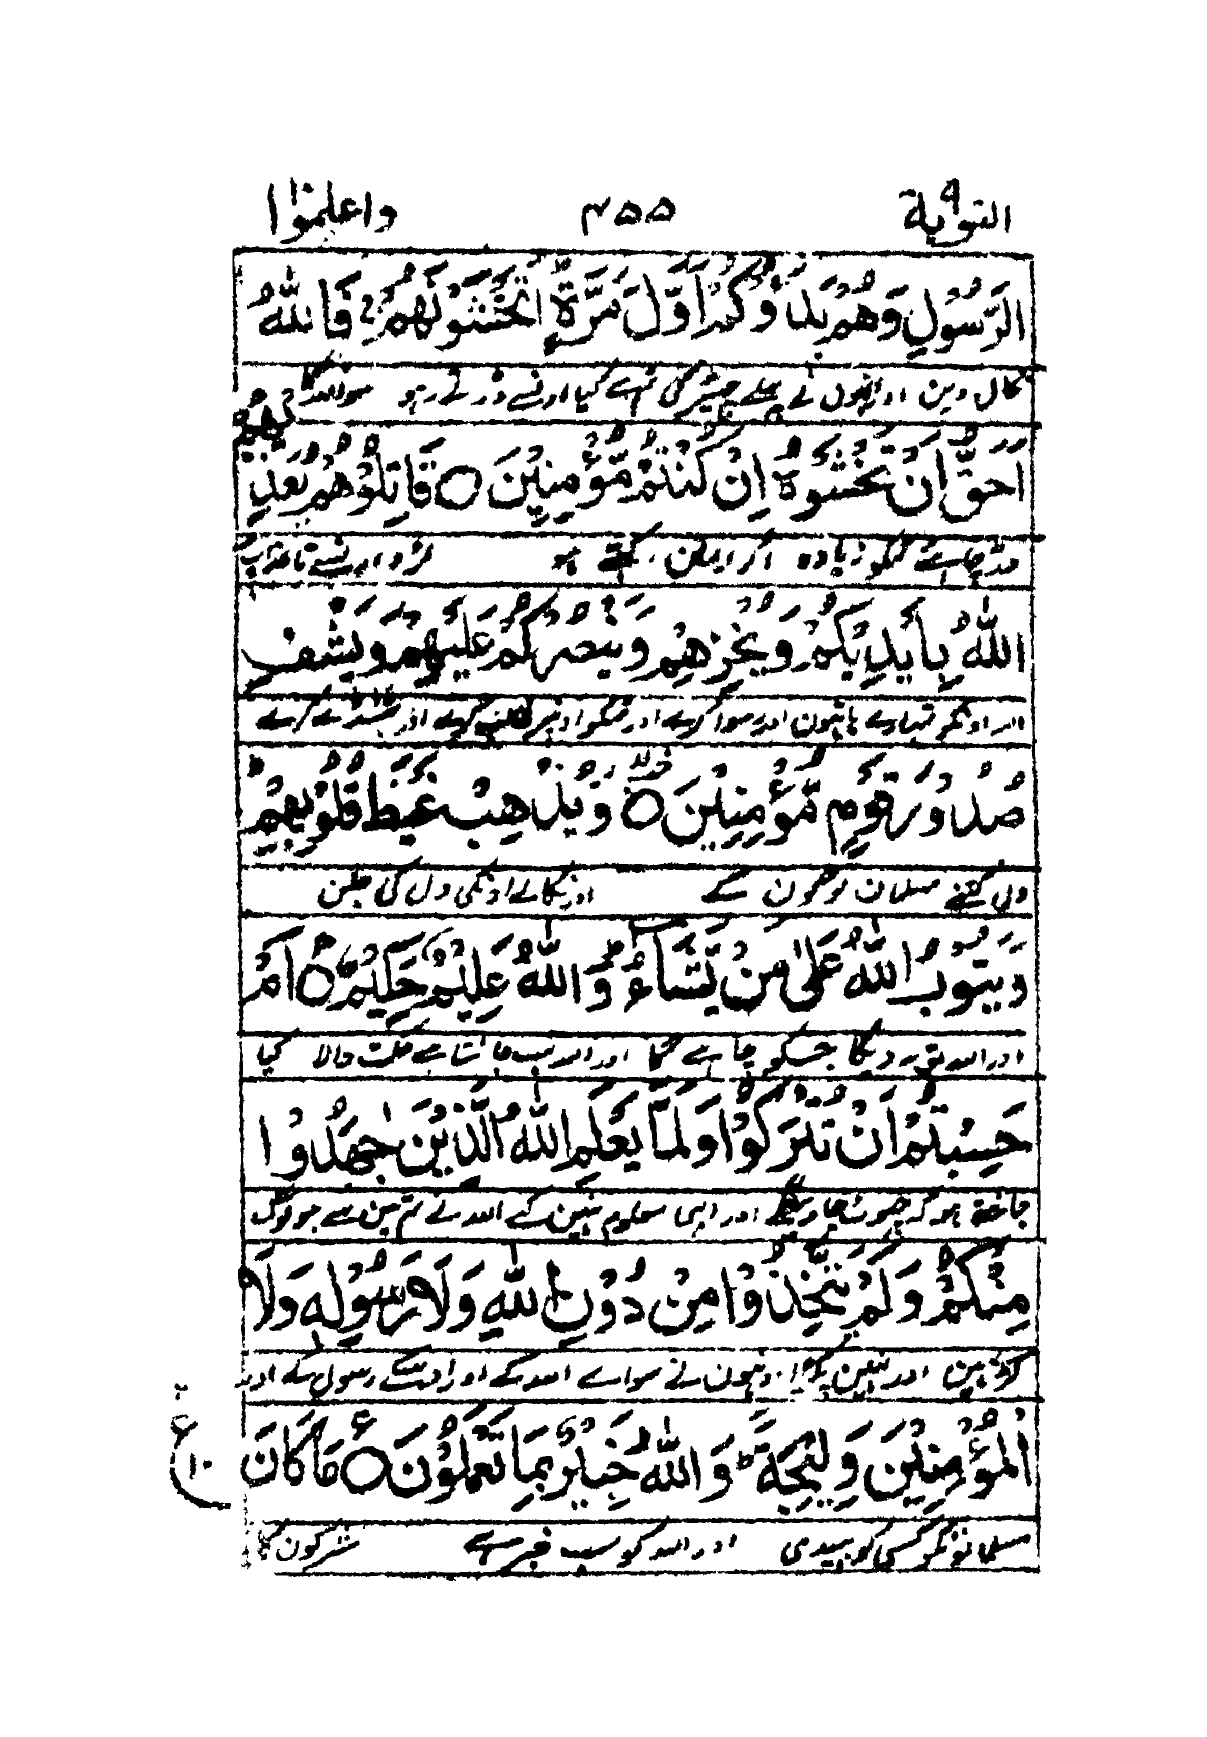 التوبة ٩ ٢٥٥ واعلموا
الرَّسُولِ وَهُمْ بَدَءُوْكُمْ اَوَّلَ مَرَّةٍ اَتَخْشَوْنَهُمْ فَاللّٰهُ
نکال دین اور انہون نے پہلے چھیڑ کی تم سے کیا اونسے ڈرتے ہو سو اللہ کا
اَحَقُّ اَنْ تَخْشَوْهُ اِنْ كُنْتُمْ مُّؤْمِنِيْنَ ○ قَاتِلُوْهُمْ يُعَذِّبْهُمُ
ڈر چاہئے تمکو زیادہ اگر ایمان رکھتے ہو لڑو اونسے تا عذاب
اللّٰهُ بِاَيْدِيْكُمْ وَيُخْزِهِمْ وَيَنْصُرْكُمْ عَلَيْهِمْ وَيَشْفِ
اللہ اونکو تمہارے ہاتہون اور رسوا کرے اور تمکو اونپر غالب کرے اور ٹھنڈے کرے
صُدُوْرَ قَوْمٍ مُّؤْمِنِيْنَ ○ وَيُذْهِبْ غَيْظَ قُلُوْبِهِمْ
دل کتنے مسلمان لوگون کے اور نکالے اونکی دل کی جلن
وَيَتُوْبُ اللّٰهُ عَلٰى مَنْ يَّشَآءُ وَاللّٰهُ عَلِيْمٌ حَكِيْمٌ ○ اَمْ
اور اللہ توبہ دیگا جسکو چاہے گا اور اللہ سب جانتا ہے حکمت والا کیا
حَسِبْتُمْ اَنْ تُتْرَكُوْا وَلَمَّا يَعْلَمِ اللّٰهُ الَّذِيْنَ جٰهَدُوْا
جانتے ہو کہ چھوٹ جاوگے اور ابھی معلوم نہین کے اللہ نے تم مین سے جو لوگ
مِنْكُمْ وَلَمْ يَتَّخِذُوْا مِنْ دُوْنِ اللّٰهِ وَلَا رَسُوْلِهٖ وَلَا
لڑے ہین اور نہین پکڑا اونہون نے سواے اللہ کے اور اوسکے رسول کے اور
الْمُؤْمِنِيْنَ وَلِيْجَةً وَاللّٰهُ خَبِيْرٌ بِمَا تَعْمَلُوْنَ ○ مَا كَانَ
ع ١٠
مسلمانونکو کسی کو بہیدی اور اللہ کو سب خبر ہے مشرکون کا